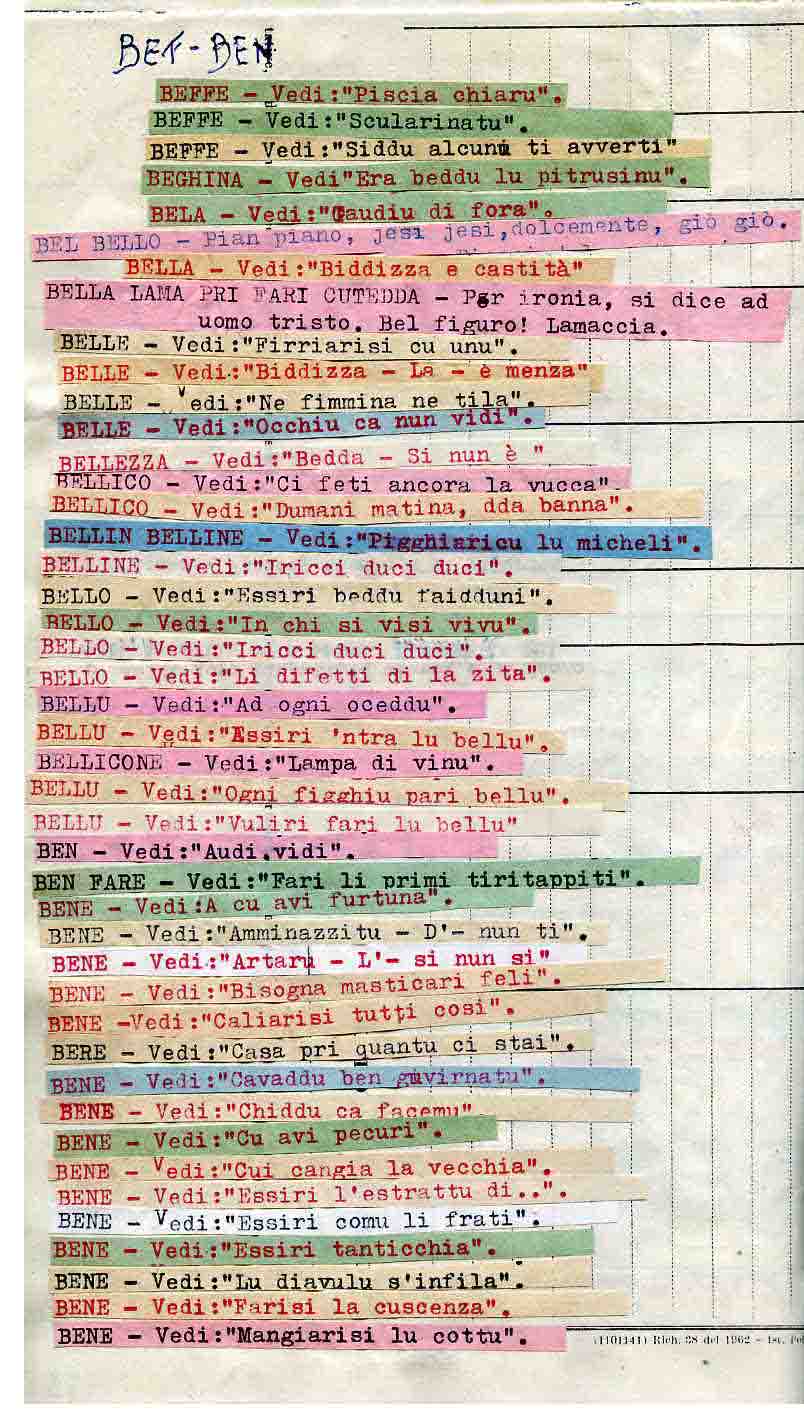 BEF-BEN
BEFFE - Vedi:"Piscia chiaru".
BEFFE - Vedi:"Scularinatu".
BEFFE - Vedi:"Siddu alcunu ti avverti"
BEGHINA - Vedi"Era beddu lu pitrusinu".
BELA - Vedi:"Gaudiu di fora".
BEL BELLO - Pian piano, jesi jesi,dolcemente, giò giò.
BELLA - Vedi:"Biddizza e castità"
BELLA LAMA PRI FARI CUTEDDA - Per ironia, si dice ad
uomo tristo. Bel figuro! Lamaccia.
BELLE - Vedi:"Firriarisi cu unu".
BELLE - Vedi.:"Biddizza - La - è menza"
BELLE - Vedi:"Ne fimmina ne tila".
BELLE - Vedi:"Occhiu ca nun vidi".
BELLEZZA - Vedi:"Bedda - Si nun è "
BELLICO - Vedi:"Ci feti ancora la vucca"
BELLICO - Vedi:"Dumani matina, dda banna".
BELLIN BELLINE - Vedi:"Pigghiaricu lu micheli".
BELLINE - Vedi:"Iricci duci duci".
BELLO - Vedi:"Essiri beddu faidduni".
BELLO - Vedi:"In chi si visi vivu".
BELLO - Vedi:"Iricci duci duci".
BELLO - Vedi:"Li difetti di la zita".
BELLU - Vedi:"Ad ogni oceddu".
BELLU - Vedi:"Essiri 'ntra lu bellu".
BELLICONE - Vedi:"Lampa di vinu".
BELLU - Vedi:"Ogni figghiu pari bellu".
BELLU - Vedi:"Vuliri fari lu bellu"
BEN - Vedi:"Audi,vidi".
BEN FARE - Vedi:"Fari li primi tiritappiti".
BENE - Vedi:A cu avi furtuna".
BENE - Vedi:"Amminazzitu - D'- nun ti".
BENE - Vedi.:"Artaru - L'- si nun si"
BENE - Vedi:"Bisogna masticari feli".
BENE -Vedi:"Caliarisi tutti cosi".
BERE - Vedi:"Casa pri quantu ci stai".
BENE - Vedi:"Cavaddu ben guvirnatu".
BENE - Vedi:"Chiddu ca facemu"
BENE - Vedi:"Cu avi pecuri".
BENE - Vedi:"Cui cangia la vecchia".
BENE - Vedi:"Essiri l'estrattu di..".
BENE - Vedi:"Essiri comu li frati".
BENE - Vedi:"Essiri tanticchia".
BENE - Vedi:"Lu diavulu s'infila".
BENE - Vedi:"Farisi la cuscenza".
BENE - Vedi:"Mangiarisi lu cottu".
(1101141) Rich. 38 del 1962 - Ist. Pol